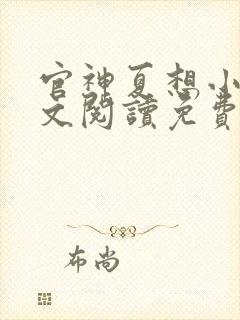 官神夏想小
文閱讀免費
布尚